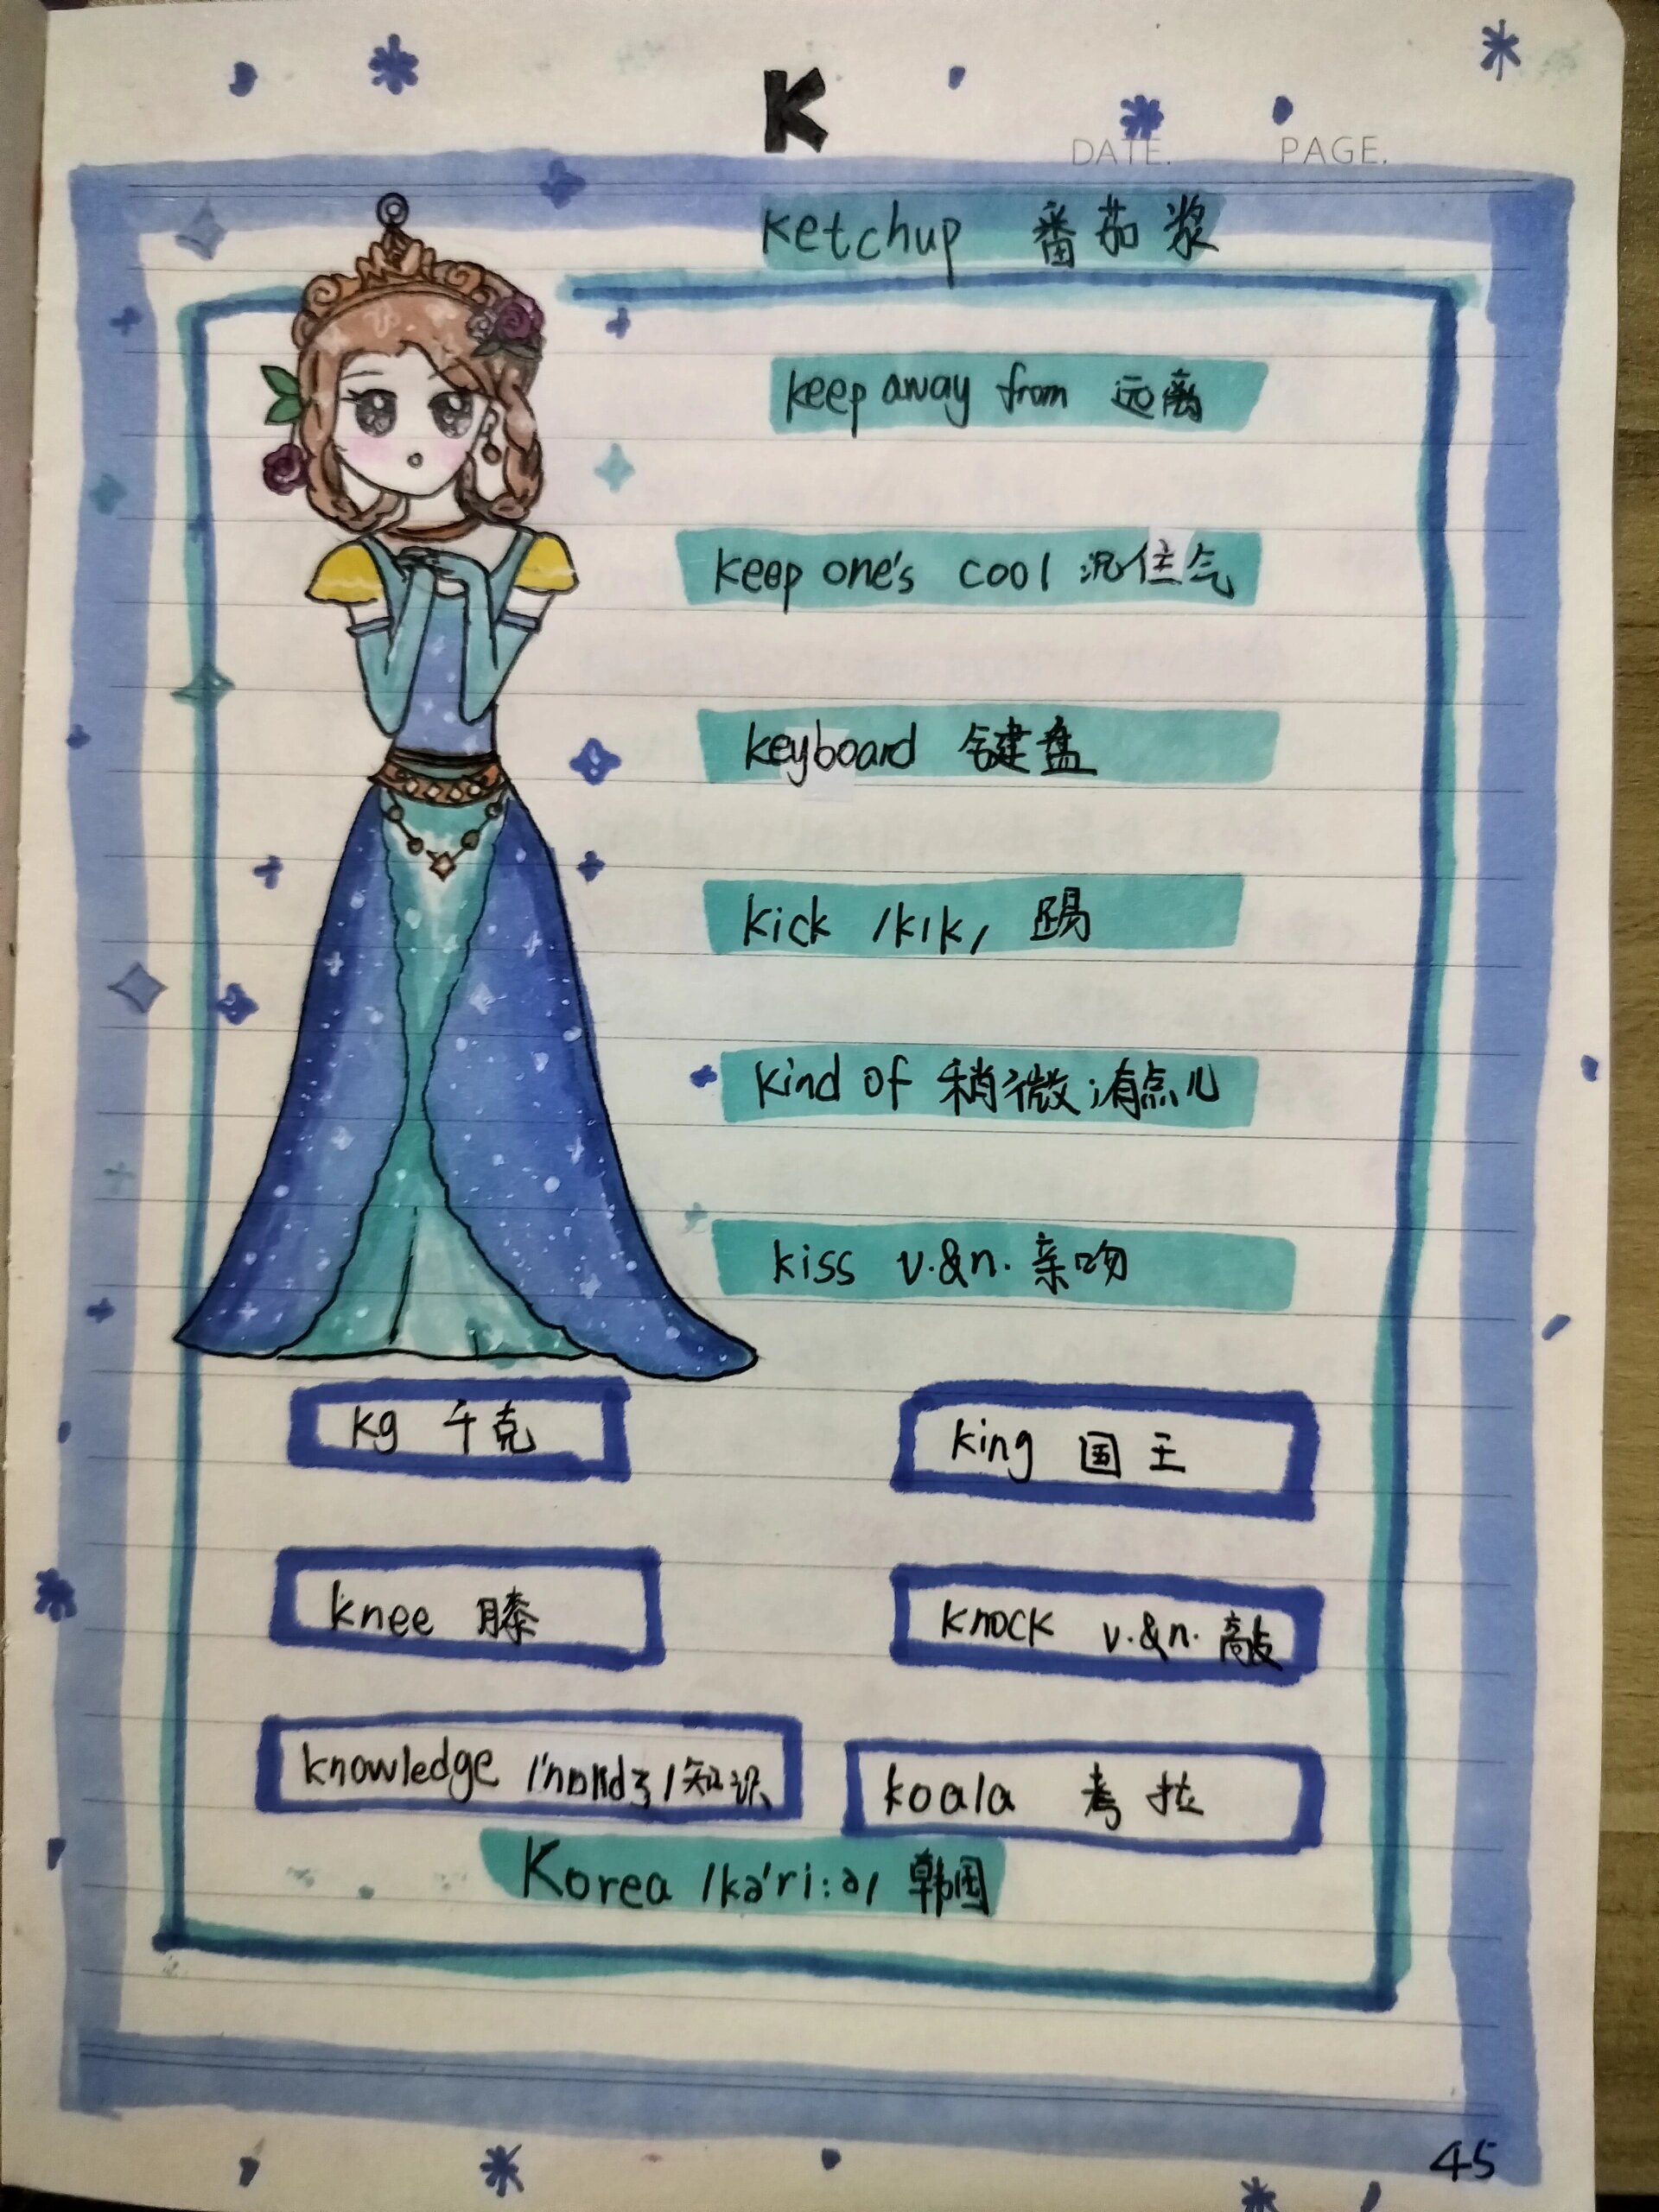 K
DATE. PAGE.
ketchup 番茄浆
keep away from 远离
keep one's cool 沉住气
keyboard 键盘
kick /kɪk/ 踢
kind of 稍微;有点儿
kiss v.&n. 亲吻
kg 千克
king 国王
knee 膝
knock v.&n. 敲
knowledge /'nɒlɪdʒ/ 知识
koala 考拉
Korea /kə'ri:ə/ 韩国
45